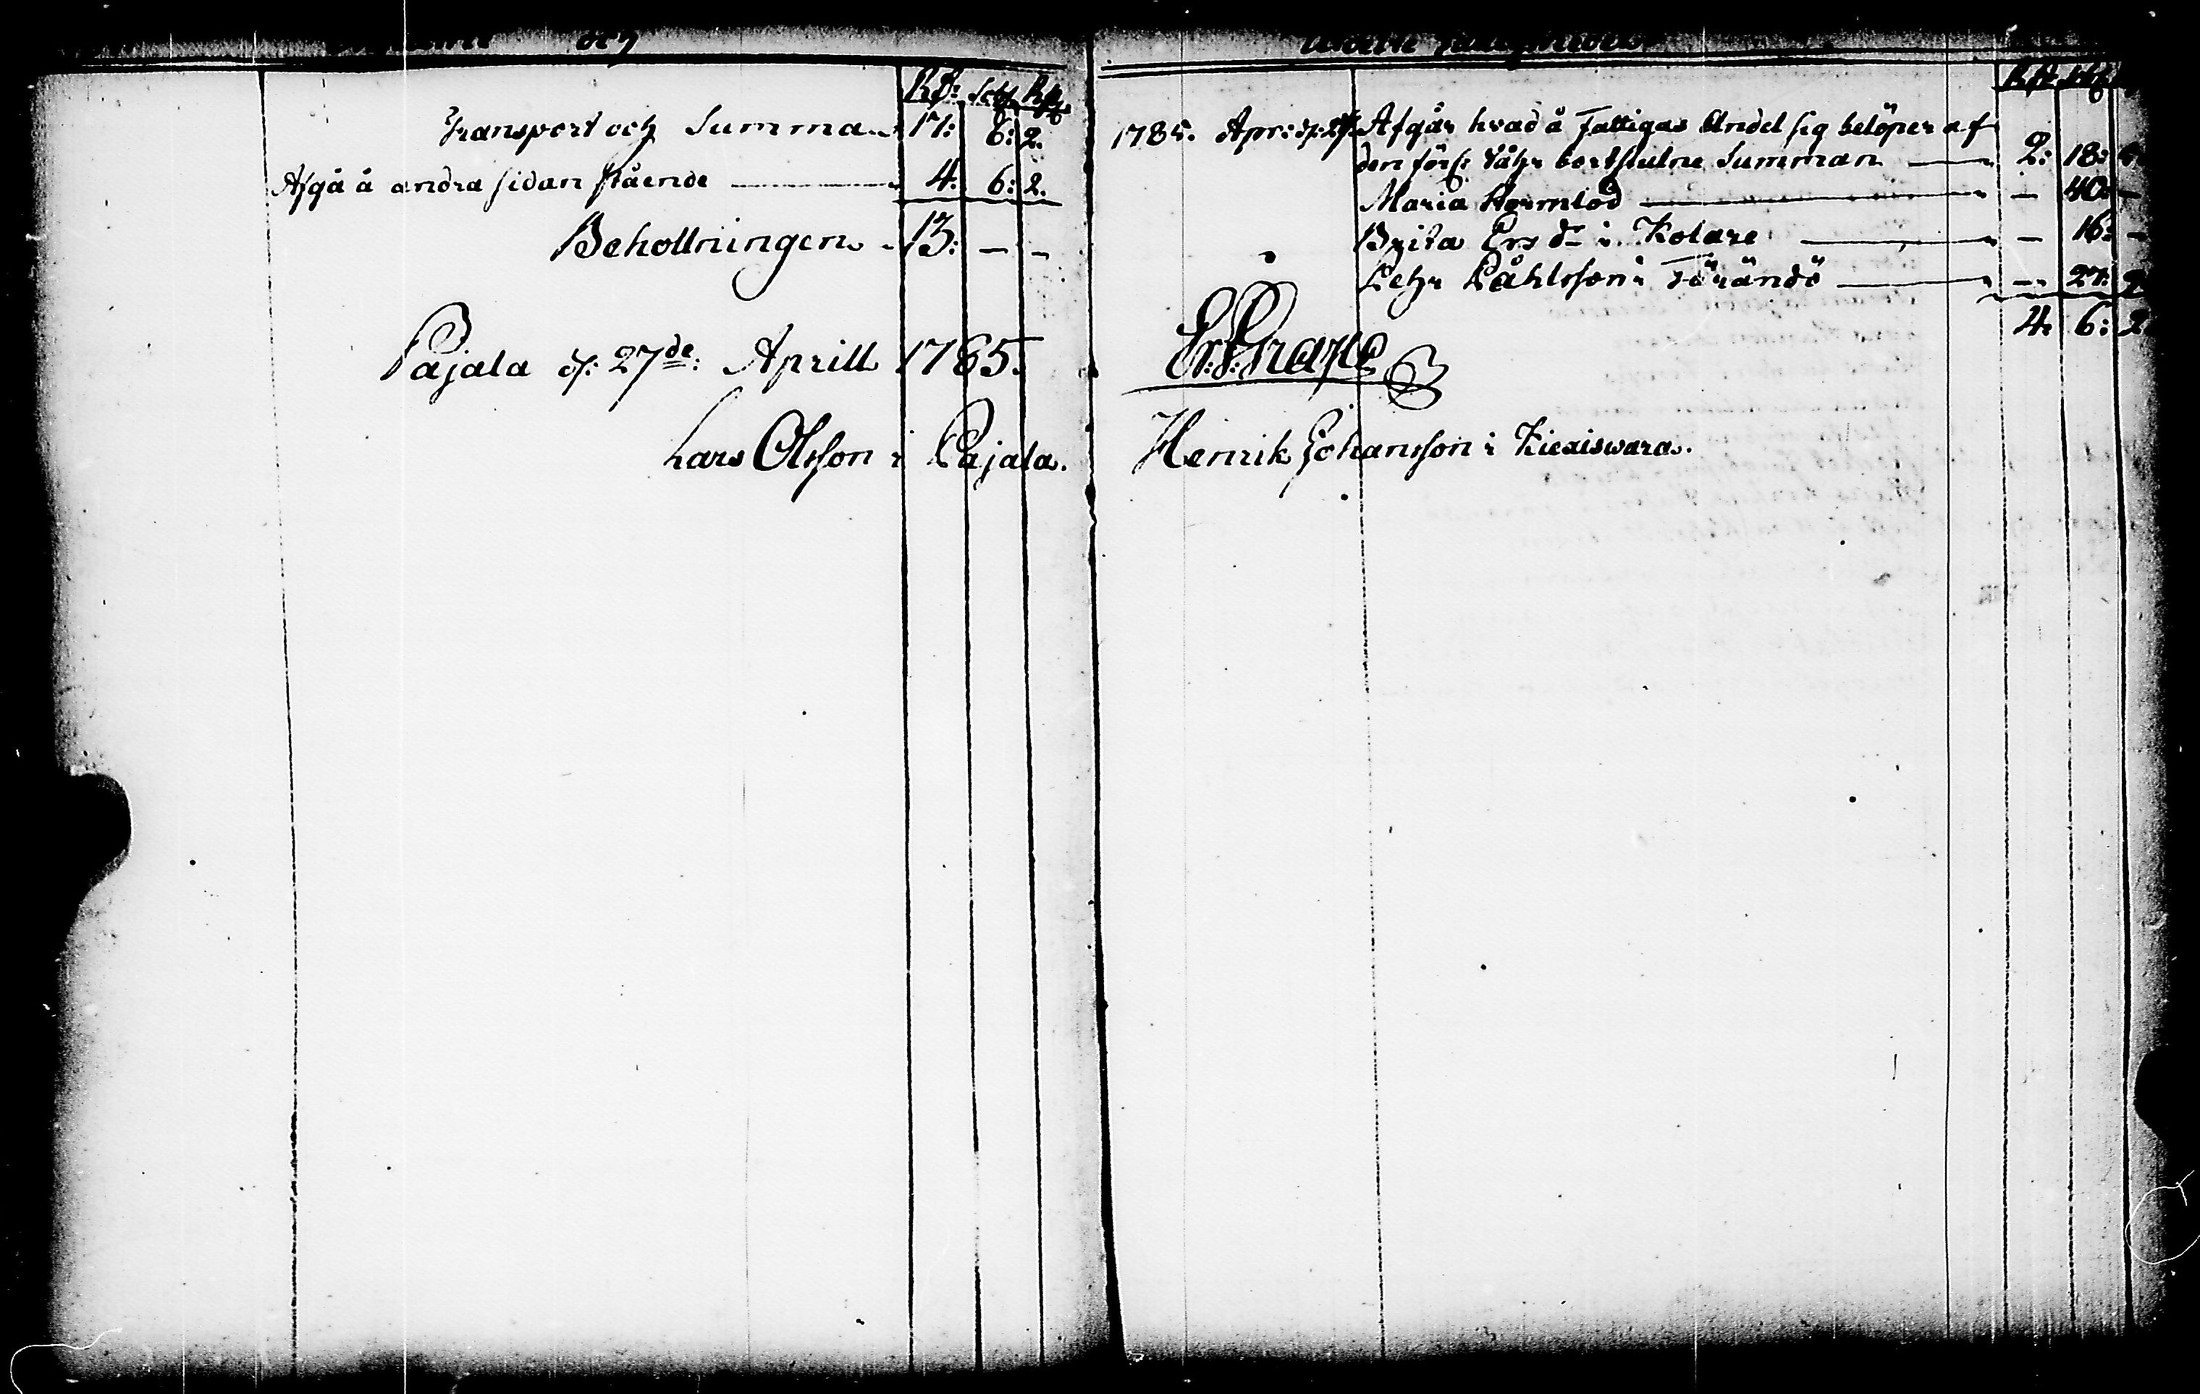 Rd: Sch Rst
Transport och Summa 17: 6: 2.
Afgå å andra sidan stående 4: 6: 2.
Behollningen 13: — —
Pajala d: 27de: Aprill 1785.
Lars Olsson i Pajala.
1785. Apr: d: 27 Afgår hvad å Fattigas Andel sig belöper af
den förl: Våhr bortstulne Summan 2: 18:
Maria Hormlöd — 40: —
Brita Ers dr i Kolare — 16: —
Pehr Påhlsson i Tärändö — 27: 2
4: 6: 2
Henrik Johansson i Kiexiswara.